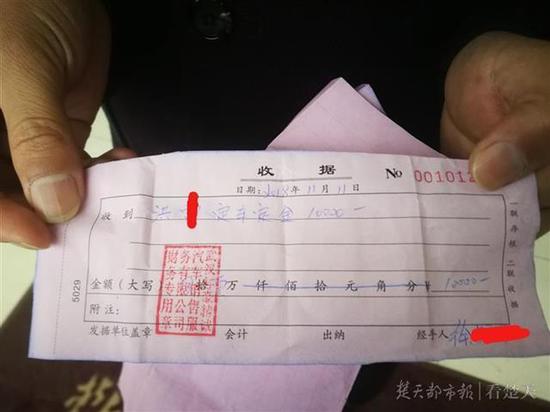 收 据 No 001012
日期: 2018 年 11 月 11 日
收 到 洪 定车定金 10000-
金额(大写) 拾 万 仟 佰 拾 元 角 分 ¥ 10000-
附注:
发据单位盖章 会计 出纳 经手人 徐
5029
一联存根 二联收据
武汉
汽车销售服
务有限公司
财务专用章
楚天都市报 | 看楚天